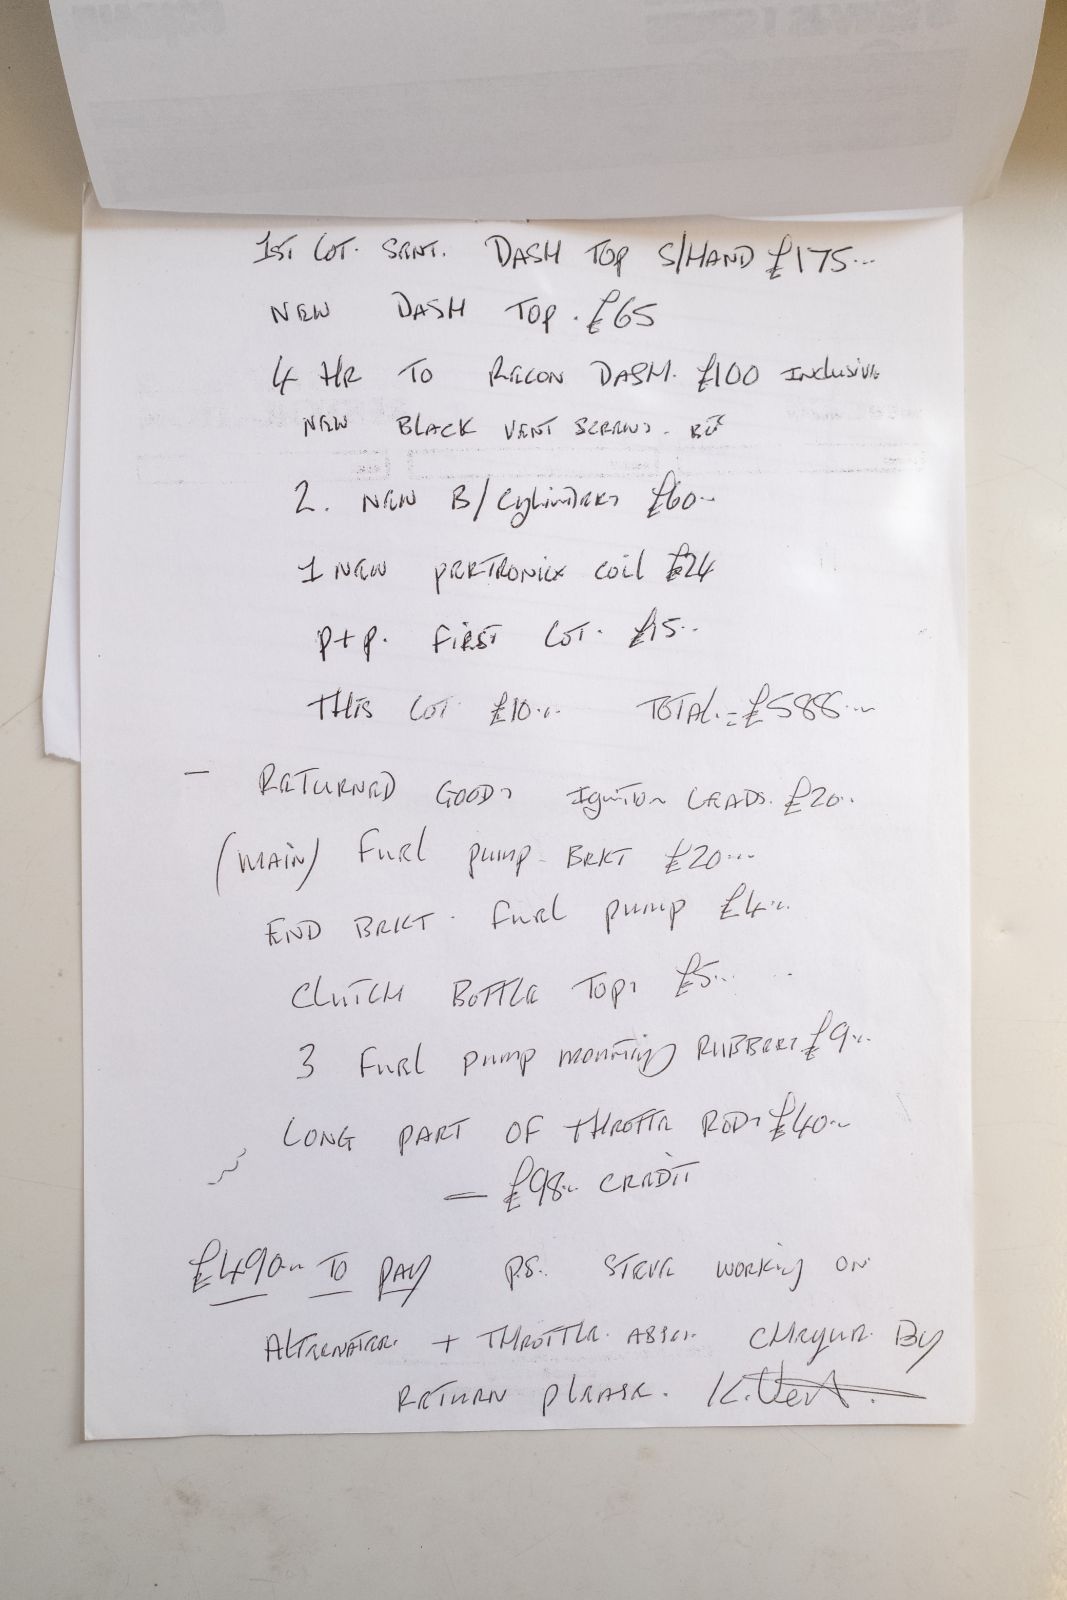 1ST LOT. SENT. DASH TOP S/HAND £175...
NEW DASH TOP. £65
4 HR TO RECON DASH. £100 INCLUSIVE
NEW BLACK VENT SCREWS.
2. NEW B/Cylinders £60..
1 NEW PERTRONIX COIL £24
P+P. FIRST LOT. £15..
THIS LOT £10... TOTAL. = £588...
- RETURNED GOODS Ignition LEADS. £20..
(MAIN) FUEL pump BRKT £20...
END BRKT. FUEL pump £4...
CLUTCH BOTTLE TOPS £5...
3 FUEL pump mounting RUBBERS £9...
LONG PART OF THROTTE RODS £40...
- £98... CREDIT
£490... TO PAY P.S. STEVE WORKING ON
ALTERNATER. + THROTTLE. ASSES. CHEQUE. By
RETURN PLEASE. K.